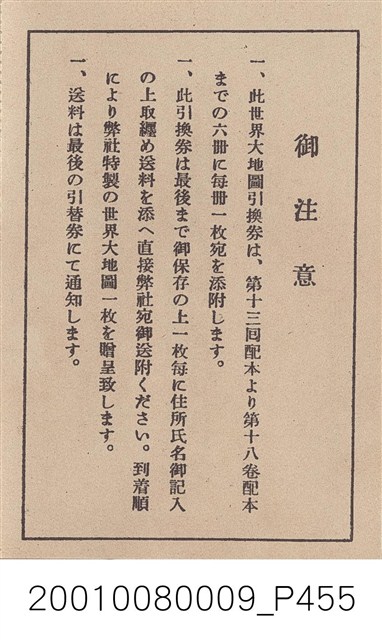 御注意
一、此世界大地圖引換券は、第十三囘配本より第十八卷配本
までの六冊に每冊一枚宛を添附します。
一、此引換券は最後まで御保存の上一枚每に住所氏名御記入
の上取纒め送料を添へ直接弊社宛御送附ください。到着順
により弊社特製の世界大地圖一枚を贈呈致します。
一、送料は最後の引替券にて通知します。
20010080009_P455